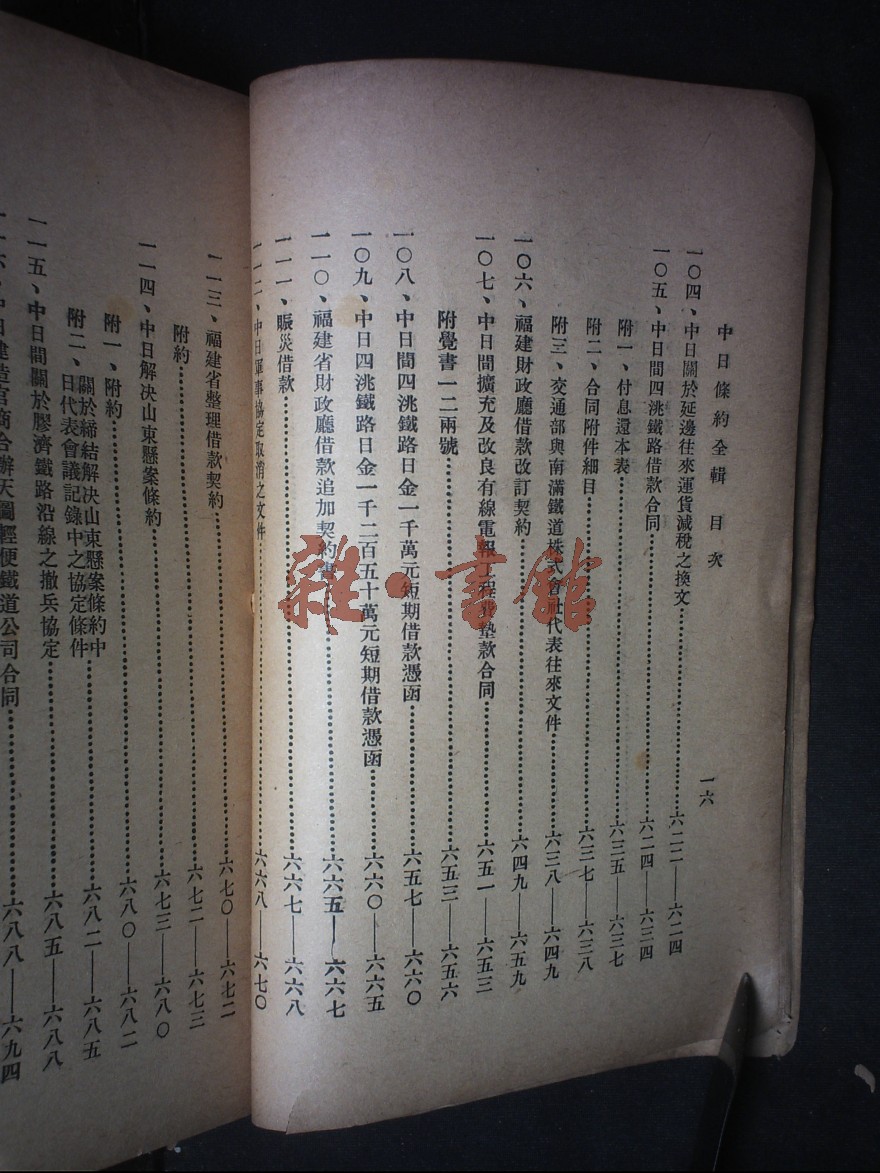 中日條約全輯 目次 一六
一〇四、中日關於延邊往來運貨減稅之換文……六二二——六二四
一〇五、中日間四洮鐵路借款合同……六二四——六三四
附一、付息還本表……六三五——六三七
附二、合同附件細目……六三七——六三八
附三、交通部與南滿鐵道株式會社代表往來文件……六三八——六四九
一〇六、福建財政廳借款改訂契約……六四九——六五九
一〇七、中日間擴充及改良有線電報工程 墊款合同……六五一——六五三
附覺書一二兩號……六五三——六五六
一〇八、中日間四洮鐵路日金一千萬元短期借款憑函……六五七——六六〇
一〇九、中日四洮鐵路日金一千二百五十萬元短期借款憑函……六六〇——六六五
一一〇、福建省財政廳借款追加契約書……六六五——六六七
一一一、賑災借款……六六七——六六八
一一二、中日軍事協定取消之文件……六六八——六七〇
一一三、福建省整理借款契約……六七〇——六七二
附約……六七二——六七三
一一四、中日解決山東懸案條約……六七三——六八〇
附一、附約……六八〇——六八二
附二、關於締結解決山東懸案條約中
日代表會議記錄中之協定條件……六八二——六八五
一一五、中日間關於膠濟鐵路沿線之撤兵協定……六八五——六八八
一一六、中日建造官商合辦天圖輕便鐵道公司合同……六八八——六九四
雜·書館